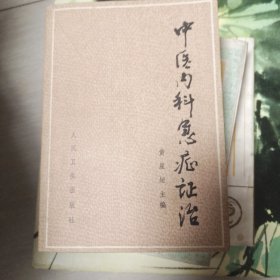 中医内科急症证治
黄星垣 主编
人民卫生出版社